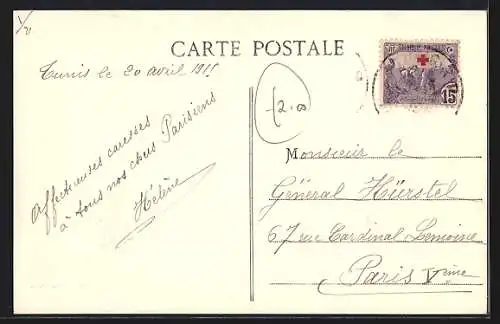 CARTE POSTALE
Tunis le 20 avril 191
Affectueuses caresses
à tous nos chers Parisiens
Hélène
Monsieur le
Général Hürstel
67 rue Cardinal Lemoine
Paris Vème
15